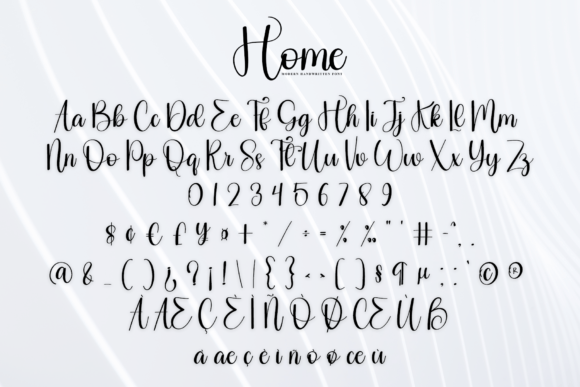 Home
MODERN HANDWRITTEN FONT
Aa Bb Cc Dd Ee Ff Gg Hh Ii Jj Kk Ll Mm
Nn Oo Pp Qq Rr Ss Tt Uu Vv Ww Xx Yy Zz
0 1 2 3 4 5 6 7 8 9
$ ¢ € £ ¥ ¤ + * / ÷ = % ‰ " ' # - ^ , .
@ & _ ( ) ¿ ? ¡ ! \ | { } ‹ › ( ) § ¶ µ : ; ` © ®
À Æ Ç È Ì Ñ Ò Ø Œ Ù ß
à æ ç è ì ñ ò ø œ ù